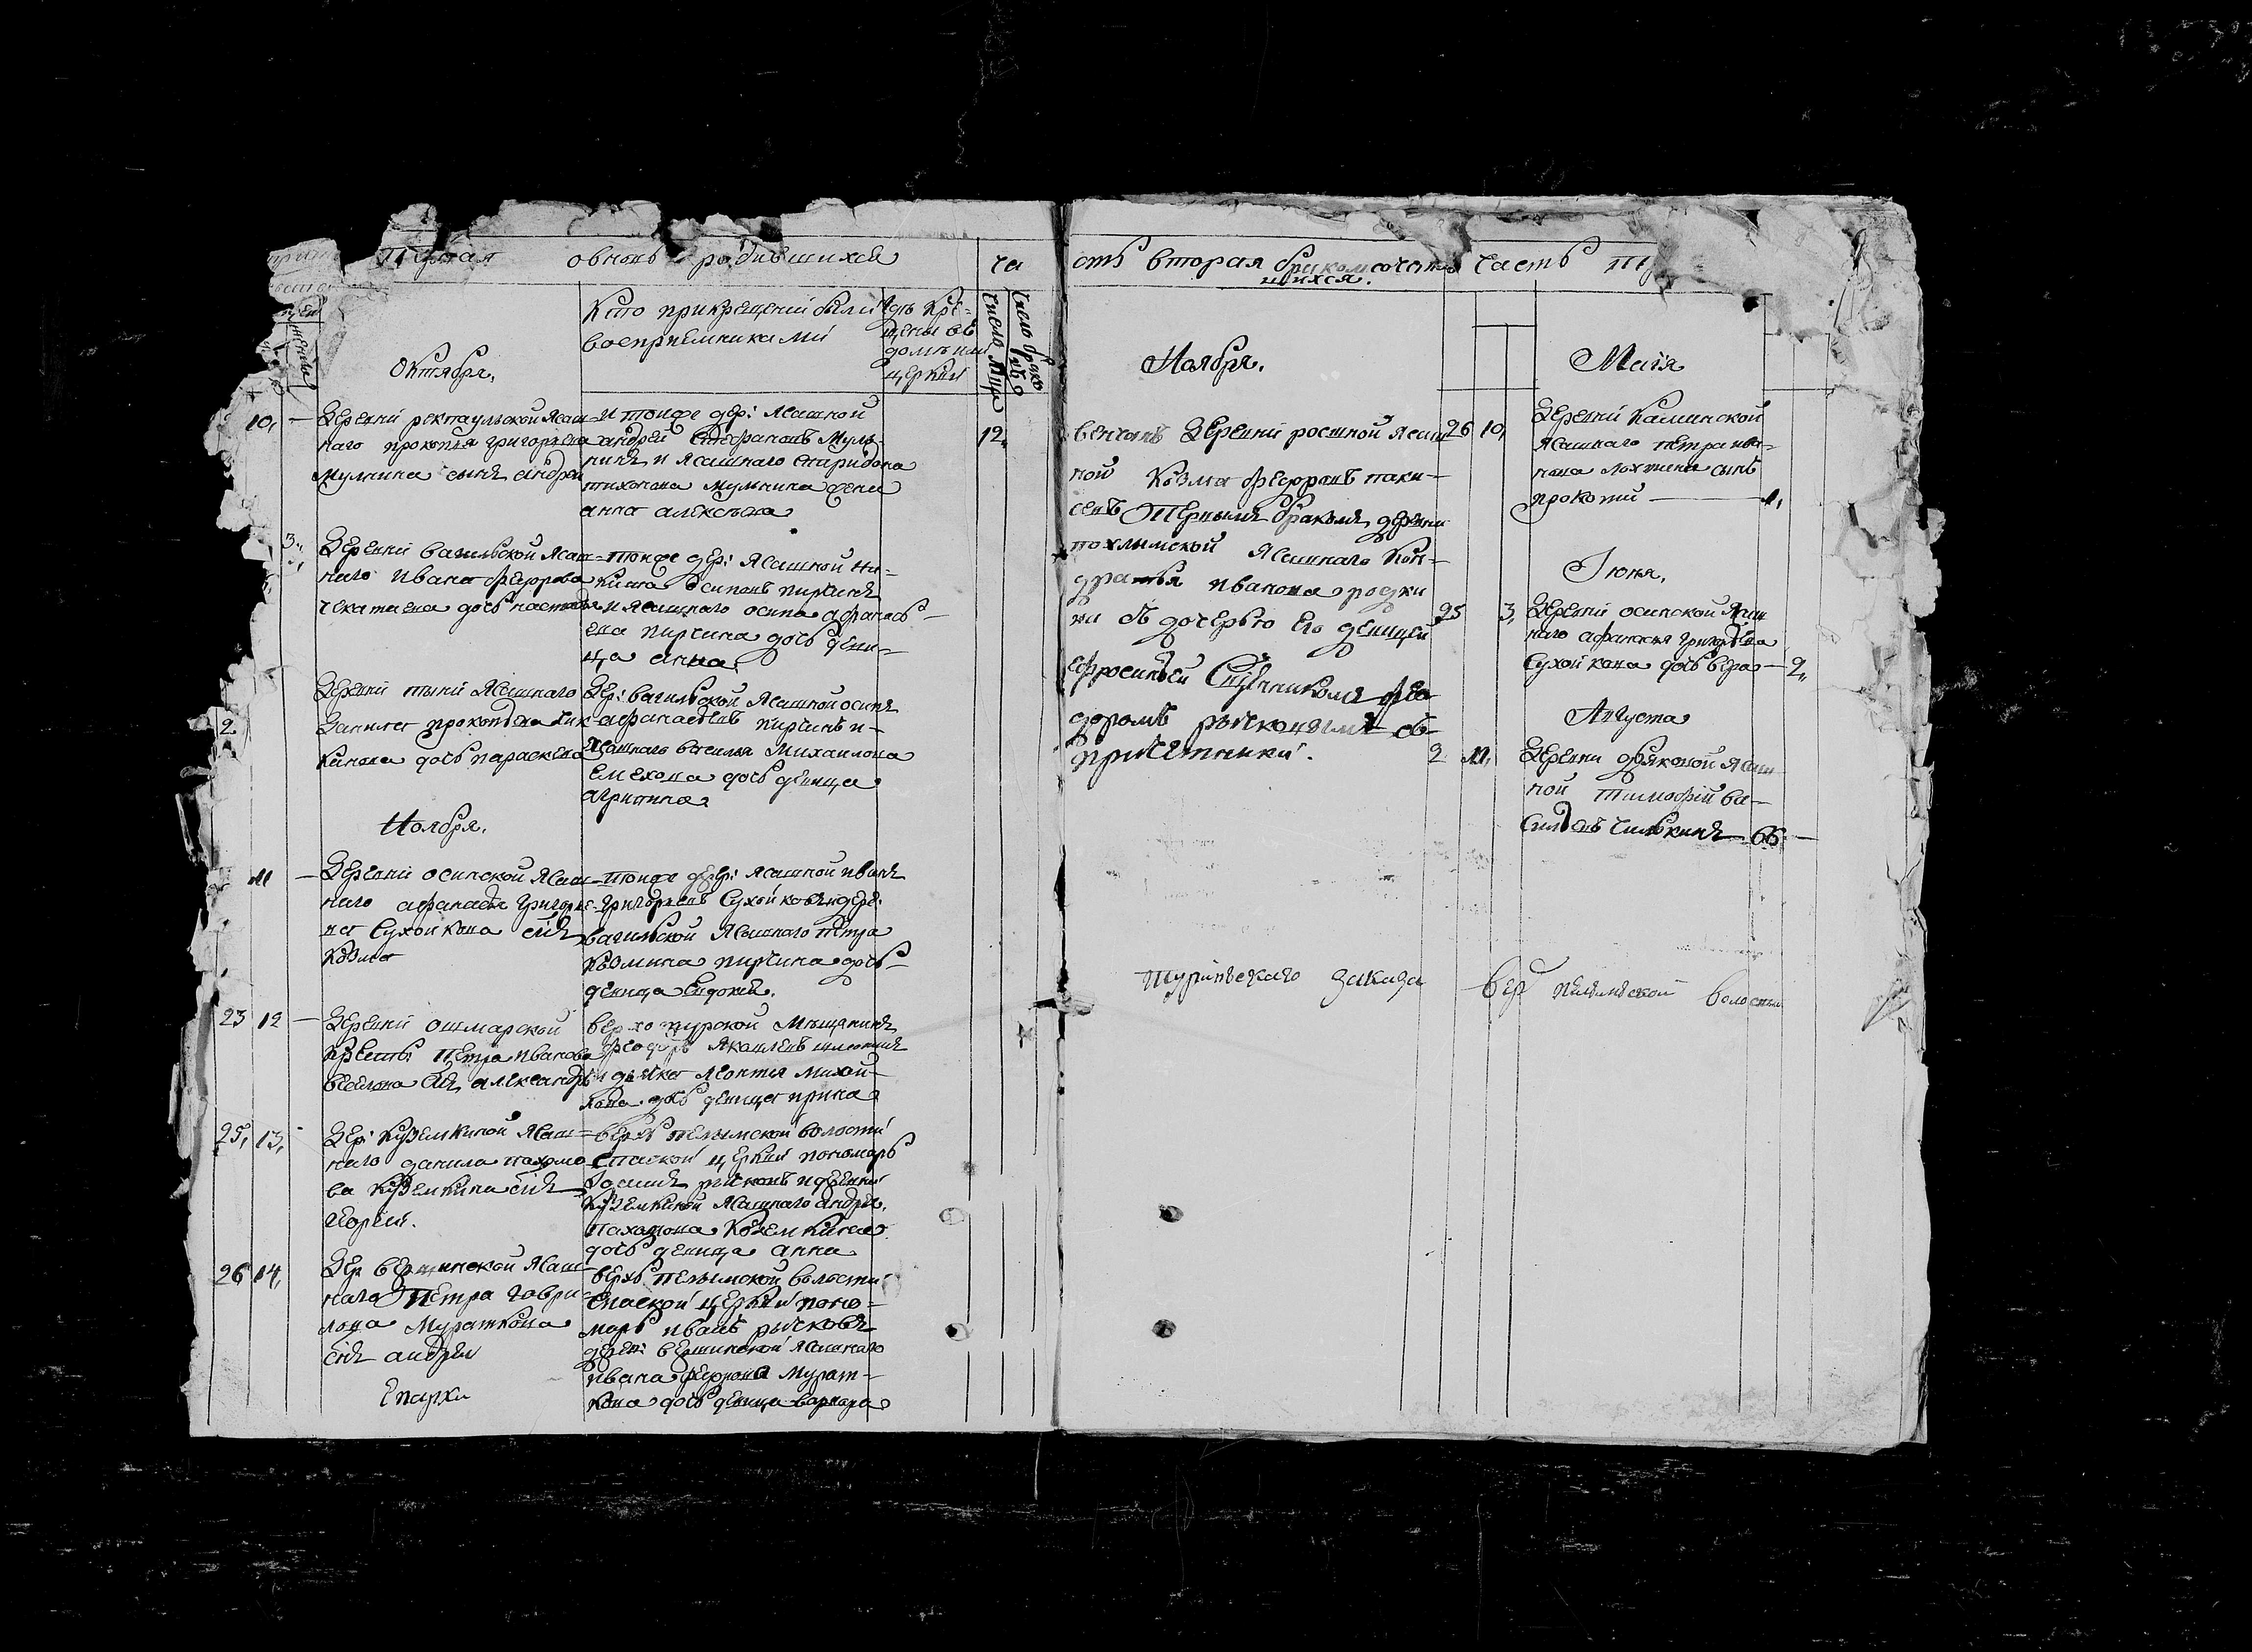 Первая о вновь родившихся ча
Кто при крещении были
восприемниками
Где кре-
щены въ
доме или
церкви
Число мца
Число брако
въ
Октября.
10, — Деревни ректаульской ясаш-
наго прокопья григорьева
Мулнина сынъ андрей
и тоиже дер: ясашной
андрей Стефановъ Муль-
нинъ и ясашнаго спиридона
тихонова мульнина жена
анна алексеева
3, Деревни вагильской ясаш-
наго Ивана федорова
чекатаева дочь настасья
тоиже дер: ясашной ни-
кита осиповъ пирчинъ
и ясашнаго осипа афанась-
ева пирчина дочь деви-
ца анна.
2. Деревни ясашнаго
данила прокопьева
канова дочь параскева
Дер: вагильской ясашной осипъ
афанасьевъ пирчинъ и
ясашнаго василья Михаилова
Емехова дочь девица
агрипина
Ноября.
11 — Деревни осинской ясаш-
наго афанасья григорье-
ва Сухойкова снъ
козма
тоиже дер: ясашной иванъ
григорьевъ Сухойковъ и дере:
вагильской ясашнаго петра
козмина пирчина дочь
девица Евдокия.
23 12 — Деревни ошмарской
кресть: петра иванова
снъ александръ
верхотурской Мещанинъ
феодоръ яковлевъ
и дьячка леонтия михай-
лова дочь девица ирина
25, 13, Дер: куземкиной ясаш-
наго данила пахомо-
ва куземкина снъ
георгий.
верхъ пелымской волости
Спаской церкви пономарь
рычковъ и деревни
куземкиной ясашнаго андрея
пахомова куземкина
дочь девица анна
26 14, Дер вершинской ясаш-
наго Петра гаври-
лова Мураткова
снъ андрей
верхъ пелымской волости
Спаской церкви поно-
марь иванъ рычковъ
дерев: вершинской ясашнаго
ивана федорова Мурат-
кова дочь девица варвара
Епархи
сть вторая бракомсочетав
шихся.
Часть
Ноября.
12, венчанъ Деревни росшной ясаш
ной козма федоровъ
первымъ бракомъ деревни
похлымской ясашнаго кон-
дратья иванова
съ дочерью его девицей
ефросиньей Священникомъ фео-
доромъ рычковымъ съ
причетники.
Маия
26 10, Деревни каминской
ясашнаго петра ива-
нова сынъ
прокопий — 1,
Июня.
25 3, Деревни осинской ясаш
наго афанасья григорьева
Сухойкова дочь вера — 2,,
Августа
2 11, Деревни дьяковой ясаш
ной тимофей ва-
сильевъ — 66 —
туринскаго заказа верх пелымской волости